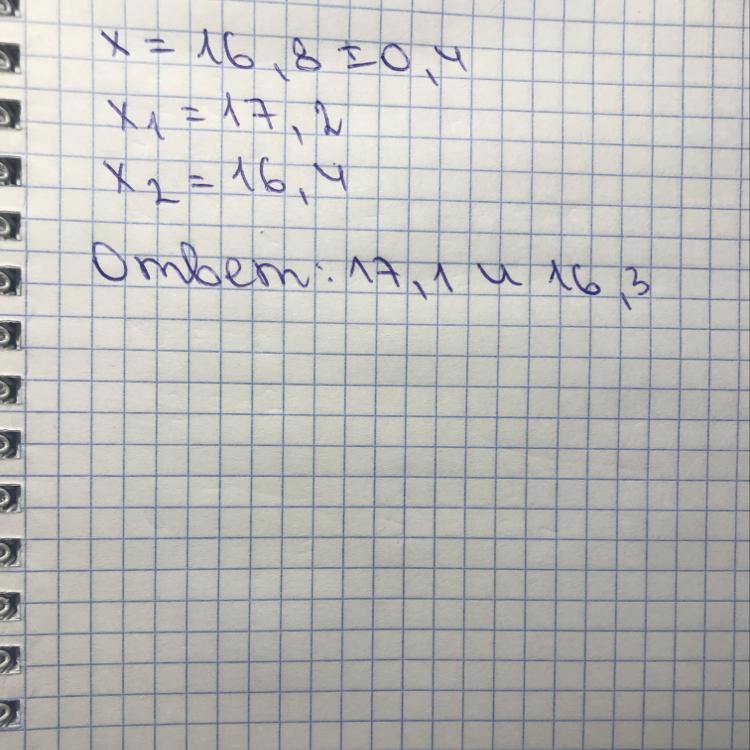 x = 16,8 ± 0,4
x₁ = 17,2
x₂ = 16,4
Ответ: 17,1 и 16,3